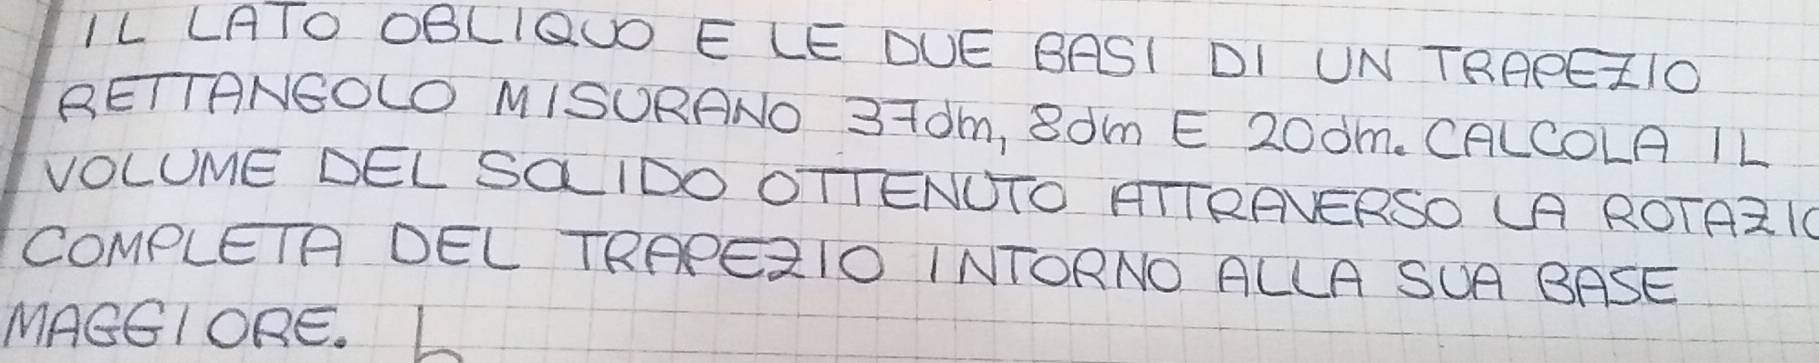 IL LATO OBLIQUO E LE DUE BASI DI UN TRAPEZIO
RETTANGOLO MISURANO 37dm, 8dm E 20dm. CALCOLA IL
VOLUME DEL SOLIDO OTTENUTO ATTRAVERSO LA ROTAZIO
COMPLETA DEL TRAPEZIO INTORNO ALLA SUA BASE
MAGGIORE.